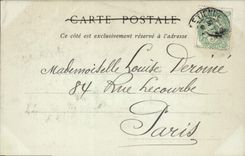 CARTE POSTALE
Ce côté est exclusivement réservé à l'adresse
Mademoiselle Louise Deroiné
84 Rue Lecourbe
Paris